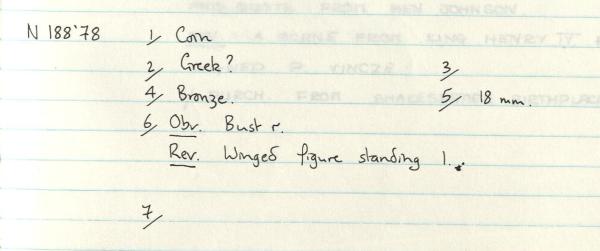 N 188'78 1/ Coin
2/ Greek? 3/
4/ Bronze. 5/ 18 mm.
6/ Obv. Bust r.
Rev. Winged figure standing l.
7/